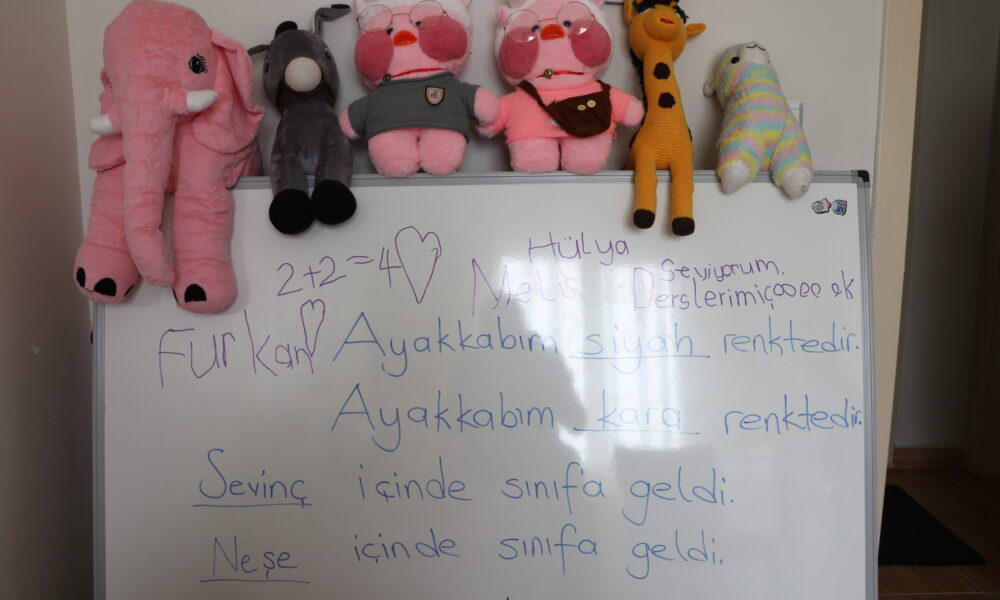 2+2=4
Hülya
Melis
Seviyorum.
Furkan
Ayakkabım siyah renktedir.
Ayakkabım kara renktedir.
Sevinç içinde sınıfa geldi.
Neşe içinde sınıfa geldi.